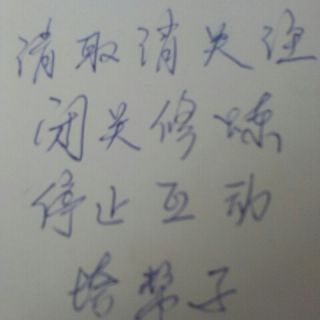 请取消关注
闭关修炼
停止互动
塔幣子